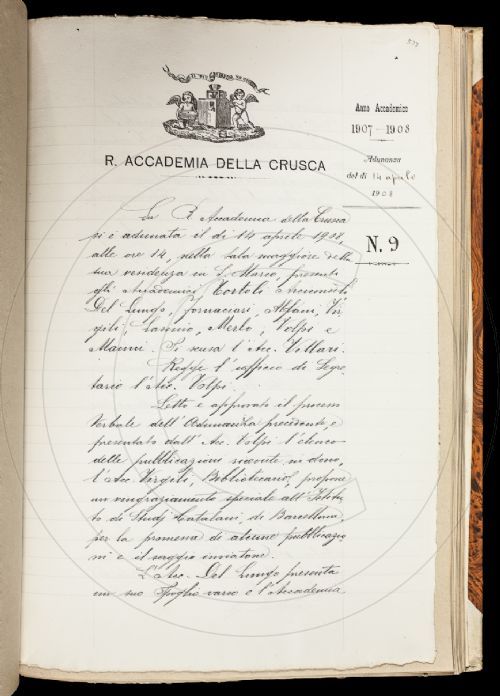 577
IL PIÙ BEL FIOR NE COGLIE
Anno Accademico
1907-1908
R. ACCADEMIA DELLA CRUSCA
Adunanza
del dì 14 aprile
1908
N. 9
La R. Accademia della Crusca
si è adunata il dì 14 aprile 1908,
alle ore 14, nella sala maggiore della
sua residenza in S. Marco, presenti
gli Accademici Tortoli Arciconsolo
Del Lungo, Fornaciari, Alfani, Vir
gili, Lasinio, Merlo, Volpi e
Mazzoni. Si scusa l'Acc. Villari.
Regge l'ufficio di Segre
tario l'Acc. Volpi.
Letto e approvato il processo
verbale dell'Adunanza precedente, e
presentato dall'Acc. Volpi l'elenco
delle pubblicazioni ricevute in dono,
l'Acc. Virgili, Bibliotecario, propone
un ringraziamento speciale all'Istitu
to di Studj Catalani di Barcellona,
per la promessa di alcune pubblicazio
ni e il saggio inviatone.
L'Acc. Del Lungo presenta
un suo Spoglio vario e l'Accademia